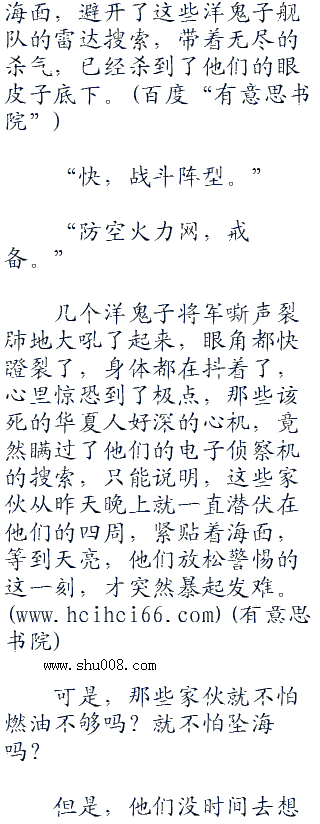 海面，避开了这些洋鬼子舰
队的雷达搜索，带着无尽的
杀气，已经杀到了他们的眼
皮子底下。(百度“有意思书
院”)
“快，战斗阵型。”
“防空火力网，戒
备。”
几个洋鬼子将军嘶声裂
肺地大吼了起来，眼角都快
瞪裂了，身体都在抖着了，
心里惊恐到了极点，那些该
死的华夏人好深的心机，竟
然瞒过了他们的电子侦察机
的搜索，只能说明，这些家
伙从昨天晚上就一直潜伏在
他们的四周，紧贴着海面，
等到天亮，他们放松警惕的
这一刻，才突然暴起发难。
(www.hcihci66.com)(有意思
书院)
www.shu008.com
可是，那些家伙就不怕
燃油不够吗？就不怕坠海
吗？
但是，他们没时间去想